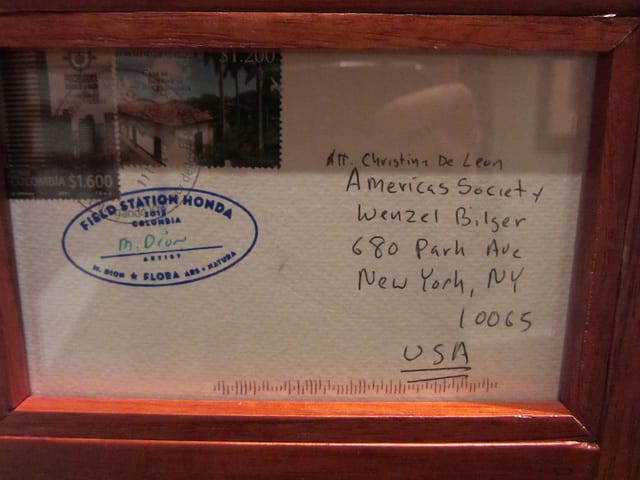 $1.200
COLOMBIA $1.600
FIELD STATION HONDA
2013
COLOMBIA
M. Dion
ARTIST
M. DION ★ FLORA ARS + NATURA
Att. Christina De Leon
Americas Society
Wenzel Bilger
680 Park Ave
New York, NY
10065
USA